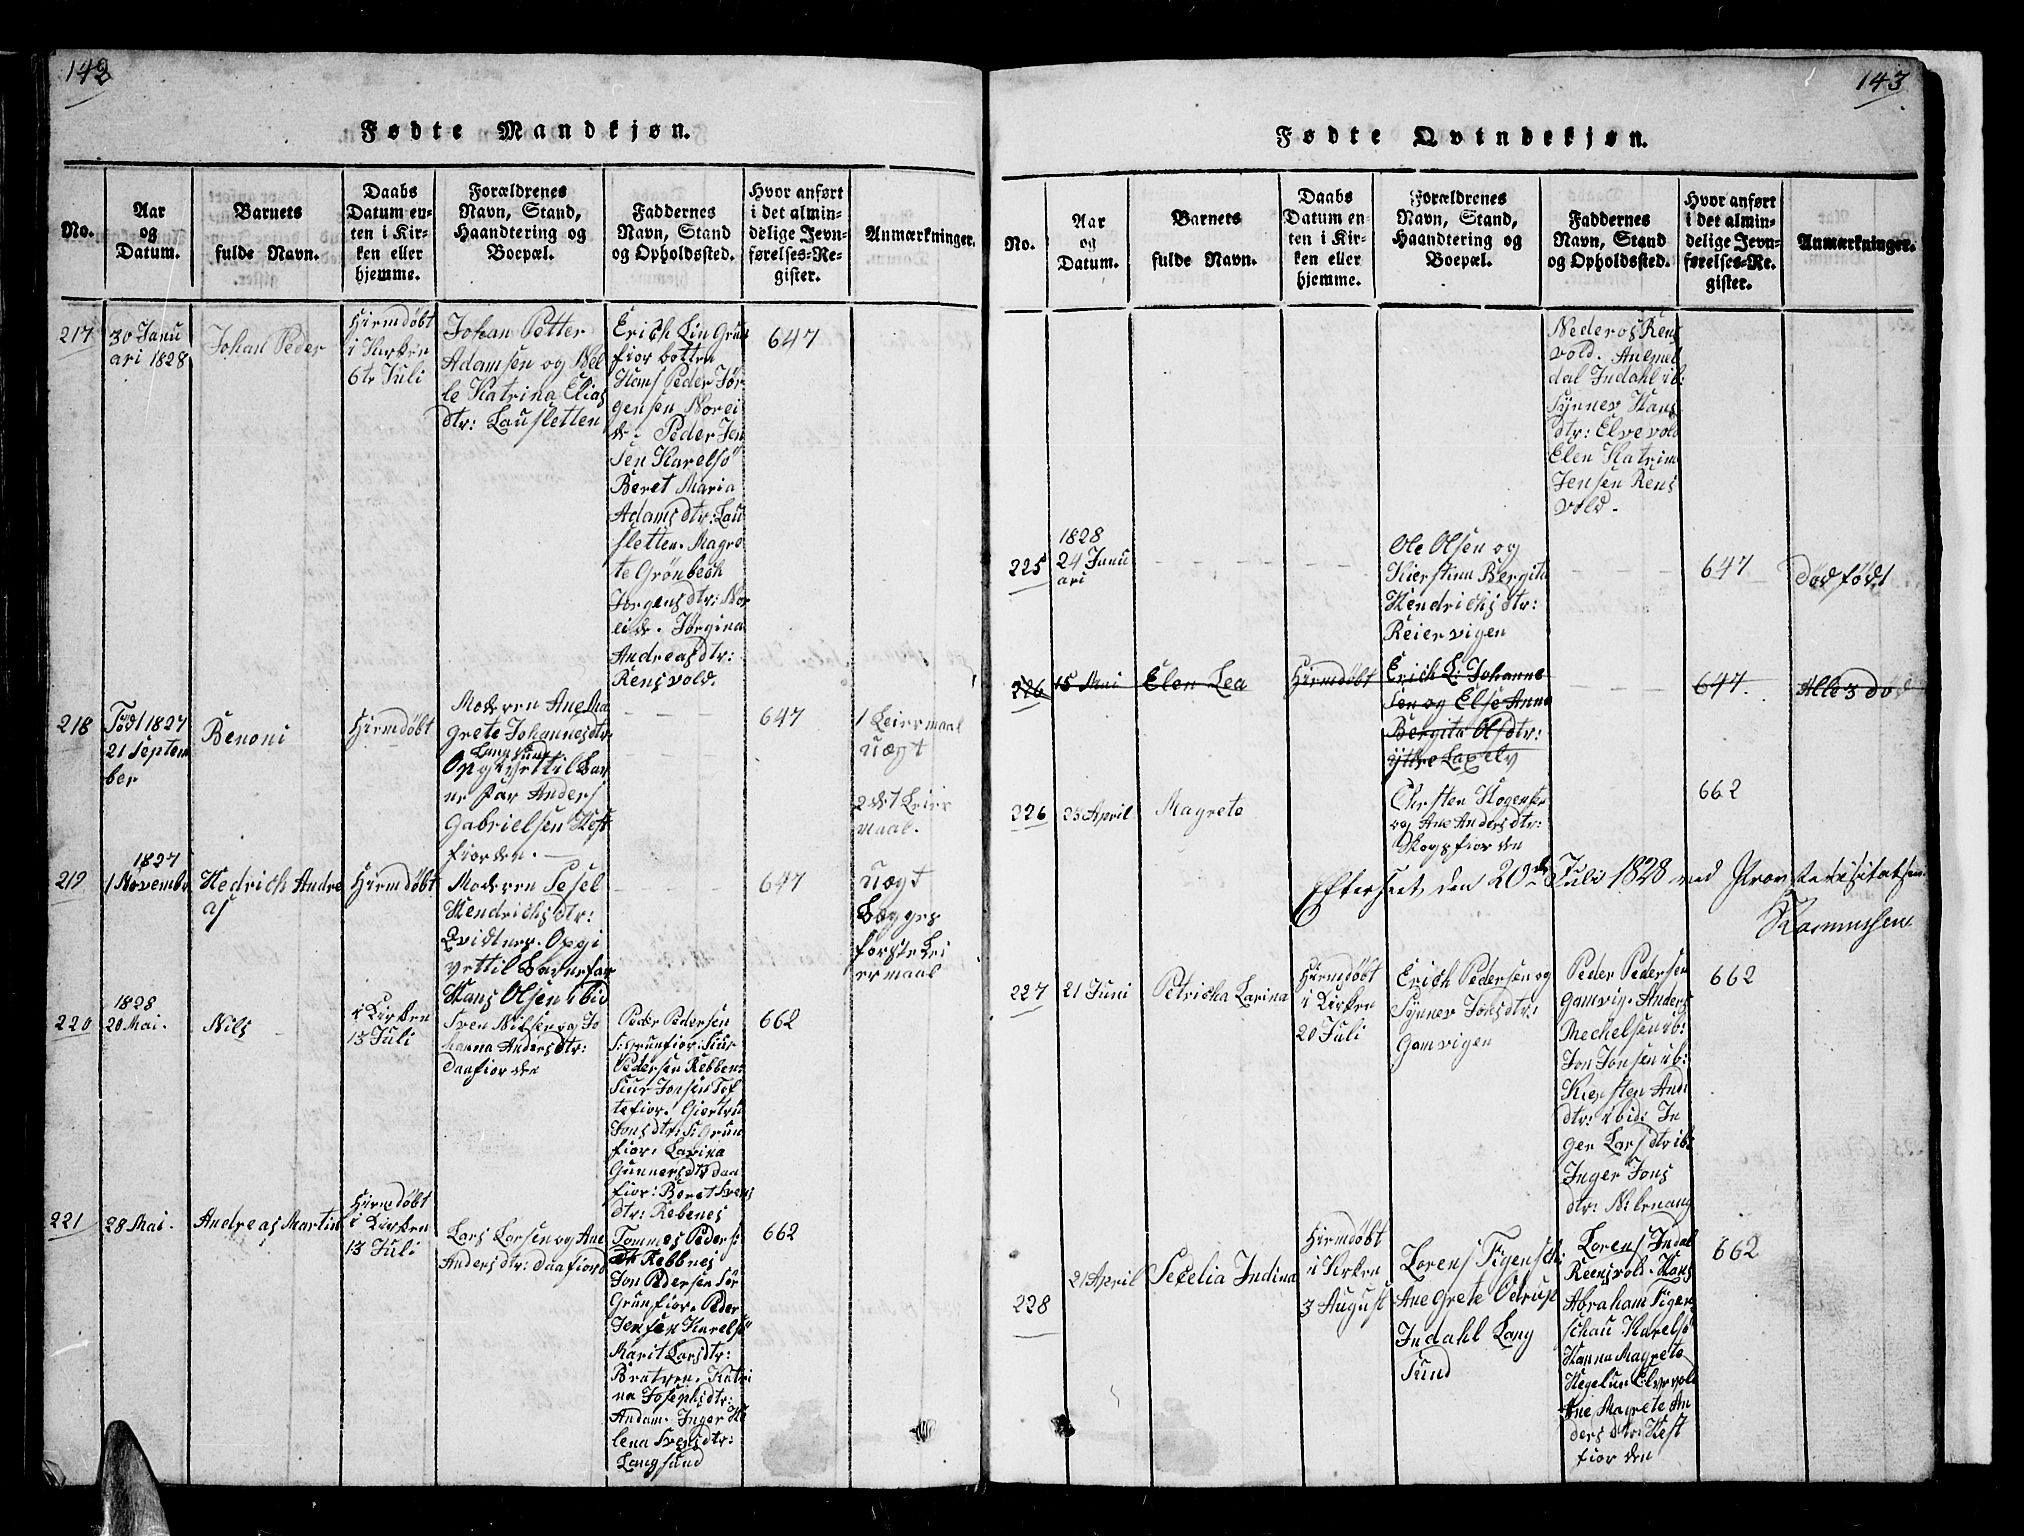 142
Fødte Mandkjøn.
No.
Aar
og
Datum.
Barnets
fulde Navn.
Daabs
Datum en-
ten i Kir-
ken eller
hjemme.
Forældrenes
Navn, Stand,
Haandtering og
Boepæl.
Faddernes
Navn, Stand
og Opholdssted.
Hvor anført
i det almin-
delige Jevn-
førelses-Re-
gister.
Anmærkninger.
217
30 Janu
ari 1828
Johan Peder
Hiemdøbt
i Kirken
6te Juli
Johan Petter
Adamsen og Nel
le Katrina Elias
dtr: Lausletten
Erich Lin Grun
fior botten
Hans Peder Jør
gensen Norei
de. Peder Jen
sen Karelsö
Beret Maria
Adamsdtr: Lau
sletten. Magre
te Grönbech
Jörgensdtr: Nor
eide. Jörgina
Andreasdtr:
Rensvold.
647
218
Födt 1827
21 Septem
ber
Benoni
Hiemdøbt
Moderen Ane Ma
grete Johannesdtr
Langsund
Opgivettil Bar
ne far Anders
Gabrielsen Kest
fiorden.
647
1 Leiermaal
uægt
2det Leier
maal.
219
1827
1 Novembr
Hedrich Andre
as
Hiemdøbt
Moderen Sesel
Hendrichsdtr:
Qvidtnes. Opgi
vettil Barnefar
Hans Olsen ibid
647
uægt
Begges
forste Lei
ermaal
220
1828
20 Mai.
Nils
i Kirken
13 Juli
Sven Nilsen og Jo
hanna Andersdtr:
Daafiorden
Peder Pedersen
S: Grunfior. Siur
Pedersen Rebbenes
Siur Jonsen Tof
tefior. Giertru
Jonsdtr: S: Grun
fior. Lavina
Gunnersdtr Daa
fior: Beret Svens
dtr: Rebenes
662
221
28 Mai.
Andreas Martin
Hiemdøbt
i Kirken
13 Juli
Lars Larsen og Ane
Andersdtr: Daafiord
Tommes Peders:
Rebbnes
Jon Pedersen Sör
Grunfior. Peder
Jensen Karelsö
Marit Larsdtr:
Bratren. Katri
na Josephsdtr:
Andam. Inger He
lena Svensdtr:
Langsund
662
143
Fødte Qvindekjøn.
No.
Aar
og
Datum.
Barnets
fulde Navn.
Daabs
Datum en-
ten i Kir-
ken eller
hjemme.
Forældrenes
Navn, Stand,
Haandtering og
Boepæl.
Faddernes
Navn, Stand
og Opholdssted.
Hvor anført
i det almin-
delige Jevn-
førelses-Re-
gister.
Anmærkninger.
Nederos Rens
vold. Anemel
dal Indahl ib:
Synnev Hans
dtr: Elvevold
Elen Katrine
Jensen Rens
vold.
225
1828
24 Janu
ari
Ole Olsen og
Kierstina Bergita
Hendrichsdtr:
Reiervigen
647
Dødfødt
226
15 Mai
Elen Lea
Hiemdøbt
Erich L: Johanne
sen og Else Anna
Bergita Olsdtr:
ÿttre Laxelv
647.
Alle 3 död
226
23 April
Magrete
Chrsten Hogensen
og Ane Andersdtr:
Skogsfiorden
662
Efterseet den 20de Juli 1828 ved Provstevisitatsen
Rasmussen
227
21 Juni
Petricha Larina
Hiemdøbt
i Kirken
20 Juli
Erich Pedersen og
Synnev Jonsdtr:
Gamvigen
Peder Pedersen
Gamvig. Anders
Mechelsen ib:
Jon Jonsen ib:
Kiersten And:
dtr: ibid: In
ger Larsdtr ib:
Inger Jons
dtr: Nikenang
662
228
21 April
Secelia Indina
Hiemdøbt
i Kirken
3 August
Lorens Figenscho:
Ane Grete Petrusd
Indahl Lang
Sund
Lorens Indal
Reensvold. Hans
Abraham Figen
schau Karelsö
Hanna Magrete
Hegelun Elvevold
Ane Magrete An
dersdtr: Kest
fiorden
662